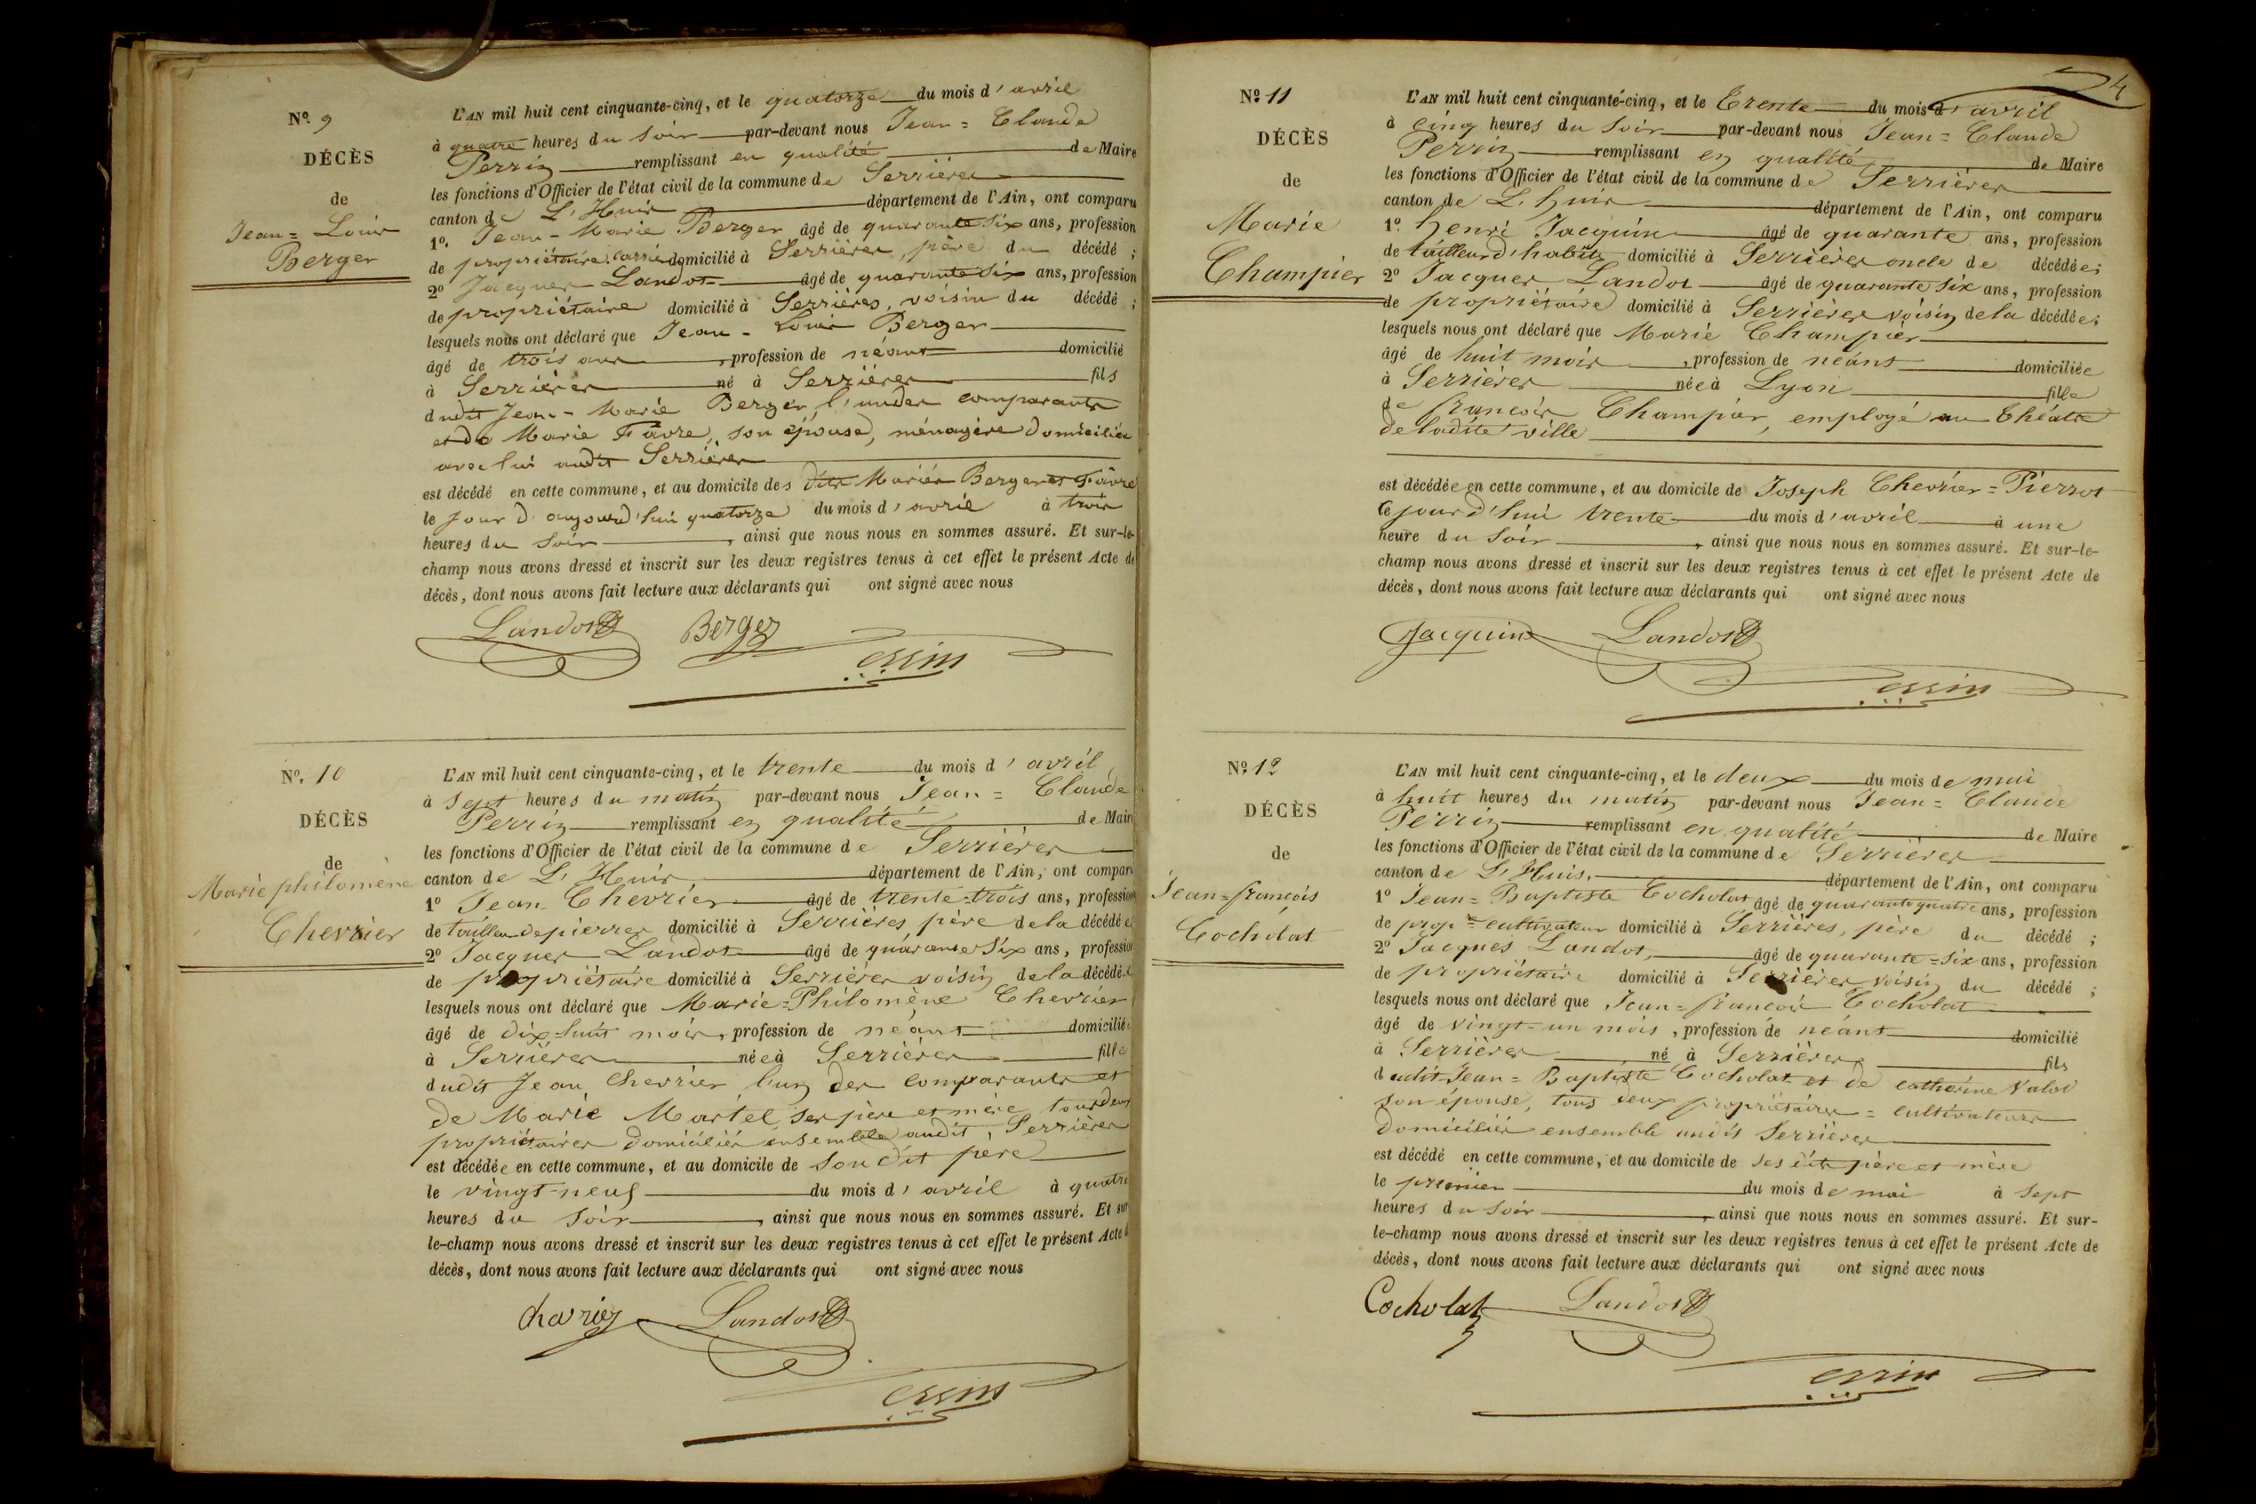 Nº. 9
DÉCÈS
de
Jean = Louis
Berger
L'AN mil huit cent cinquante-cinq, et le quatorze du mois d'avril
à quatre heures du soir par-devant nous Jean = Claude
Perrin remplissant en qualité de Maire
les fonctions d'Officier de l'état civil de la commune de Serrières
canton de L'Huis département de l'Ain, ont comparu
1º. Jean-Marie Berger âgé de quarante six ans, profession
de propriétaire domicilié à Serrières, père du décédé ;
2º Jacques Landot âgé de quarante six ans, profession
de propriétaire domicilié à Serrières, voisin du décédé ;
lesquels nous ont déclaré que Jean - Louis Berger
âgé de trois ans, profession de néant domicilié
à Serrières né à Serrières fils
dudit Jean-Marie Berger, l'un des comparants
et de Marie Favre, son épouse, ménagère domiciliée
avec lui audit Serrières
est décédé en cette commune, et au domicile des dits Mariés Berger et Favre
le jour d'aujourd'hui quatorze du mois d'avril à trois
heures du soir, ainsi que nous nous en sommes assuré. Et sur-le-
champ nous avons dressé et inscrit sur les deux registres tenus à cet effet le présent Acte de
décès, dont nous avons fait lecture aux déclarants qui ont signé avec nous
Landot Berger
Perrin
Nº. 10
DÉCÈS
de
Marie philomène
Chevrier
L'AN mil huit cent cinquante-cinq, et le trente du mois d'avril
à sept heures du matin par-devant nous Jean = Claude
Perrin remplissant en qualité de Maire
les fonctions d'Officier de l'état civil de la commune de Serrières
canton de L'Huis département de l'Ain, ont comparu
1º Jean Chevrier âgé de trente-trois ans, profession
de tailleur de pierres domicilié à Serrières père de la décédée
2º Jacques Landot âgé de quarante six ans, profession
de propriétaire domicilié à Serrières voisin de la décédée
lesquels nous ont déclaré que Marie-Philomène Chevrier
âgé de dix-huit mois, profession de néant domiciliée
à Serrières née à Serrières fille
dudit Jean Chevrier l'un des comparants et
de Marie Martel, ses père et mère, tous deux
propriétaires domiciliés ensemble audit, Serrières
est décédée en cette commune, et au domicile de son dit père
le vingt-neuf du mois d'avril à quatre
heures du soir, ainsi que nous nous en sommes assuré. Et sur
le-champ nous avons dressé et inscrit sur les deux registres tenus à cet effet le présent Acte de
décès, dont nous avons fait lecture aux déclarants qui ont signé avec nous
Chevrier Landot
Perrin
4
Nº 11
DÉCÈS
de
Marie
Champier
L'AN mil huit cent cinquante-cinq, et le trente du mois d'avril
à cinq heures du soir par-devant nous Jean = Claude
Perrin remplissant en qualité de Maire
les fonctions d'Officier de l'état civil de la commune de Serrières
canton de L'huis département de l'Ain, ont comparu
1º. henri Jacquin âgé de quarante ans, profession
de tailleur d'habits domicilié à Serrières oncle de décédée;
2º Jacques Landot âgé de quarante six ans, profession
de propriétaire domicilié à Serrières voisin de la décédée;
lesquels nous ont déclaré que Marie Champier
âgé de huit mois, profession de néant domiciliée
à Serrières née à Lyon fille
de françois Champier, employé au théâtre
de ladite ville
est décédée en cette commune, et au domicile de Joseph Chevrier = Pierrot
le jourd'hui trente du mois d'avril à une
heure du soir, ainsi que nous nous en sommes assuré. Et sur-le-
champ nous avons dressé et inscrit sur les deux registres tenus à cet effet le présent Acte de
décès, dont nous avons fait lecture aux déclarants qui ont signé avec nous
Jacquin Landot
Perrin
Nº. 12
DÉCÈS
de
Jean=françois
Cocholat
L'AN mil huit cent cinquante-cinq, et le deux du mois de mai
à huit heures du matin par-devant nous Jean = Claude
Perrin remplissant en qualité de Maire
les fonctions d'Officier de l'état civil de la commune de Serrières
canton de L'Huis, département de l'Ain, ont comparu
1º Jean = Baptiste Cocholat âgé de quarante quatre ans, profession
de prop.re cultivateur domicilié à Serrières, père du décédé ;
2º Jacques Landot, âgé de quarante = six ans, profession
de propriétaire domicilié à Serrières voisin du décédé ;
lesquels nous ont déclaré que Jean = françois Cocholat
âgé de vingt-un mois, profession de néant domicilié
à Serrières né à Serrières fils
dudit Jean = Baptiste Cocholat et de catherine Valod
son épouse, tous deux propriétaires = cultivateurs
domiciliés ensemble audit Serrières
est décédé en cette commune, et au domicile de ses dits père et mère
le premier du mois de mai à sept
heures du soir, ainsi que nous nous en sommes assuré. Et sur-
le-champ nous avons dressé et inscrit sur les deux registres tenus à cet effet le présent Acte de
décès, dont nous avons fait lecture aux déclarants qui ont signé avec nous
Cocholat Landot
Perrin